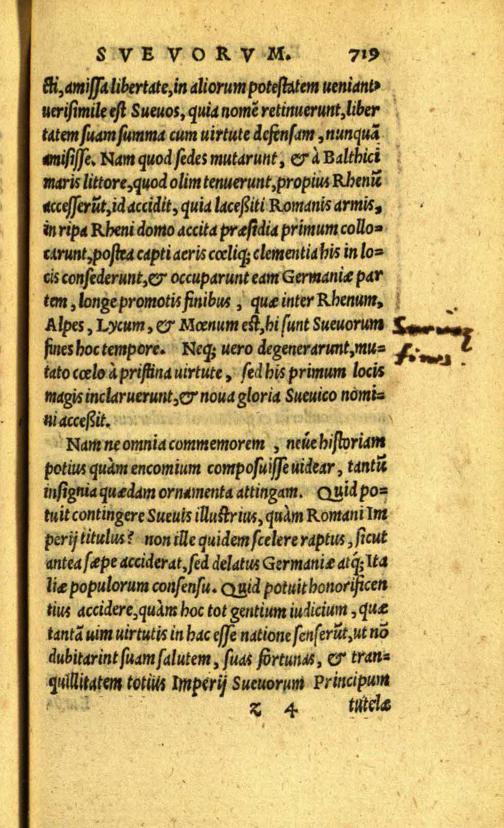 SVEVORVM. 719
cti, amissa libertate, in aliorum potestatem ueniant,
uerisimile est Sueuos, quia nomē retinuerunt, liber
tatem suam summa cum uirtute defensam, nunquā
amisisse. Nam quod sedes mutarunt, & à Balthici
maris littore, quod olim tenuerunt, propius Rhenū
accesserūt, id accidit, quia lacessiti Romanis armis,
in ripa Rheni domo accita præsidia primum collo=
carunt, postea capti aeris cœliq; clementia his in lo=
cis consederunt, & occuparunt eam Germaniæ par
tem, longe promotis finibus, quæ inter Rhenum,
Alpes, Lycum, & Mœnum est, hi sunt Sueuorum
fines hoc tempore. Neq; uero degenerarunt, mu=
tato cœlo à pristina uirtute, sed his primum locis
magis inclaruerunt, & noua gloria Sueuico nomi=
ni accessit.
Nam ne omnia commemorem, neúe historiam
potius quàm encomium composuisse uidear, tantū
insignia quædam ornamenta attingam. Quid po=
tuit contingere Sueuis illustrius, quàm Romani Im
perij titulus? non ille quidem scelere raptus, sicut
antea sæpe acciderat, sed delatus Germaniæ atq; Ita
liæ populorum consensu. Quid potuit honorificen
tius accidere, quàm hoc tot gentium iudicium, quæ
tantā uim uirtutis in hac esse natione senserūt, ut nō
dubitarint suam salutem, suas fortunas, & tran=
quillitatem totius Imperij Sueuorum Principum
z 4 tutelæ
fines.